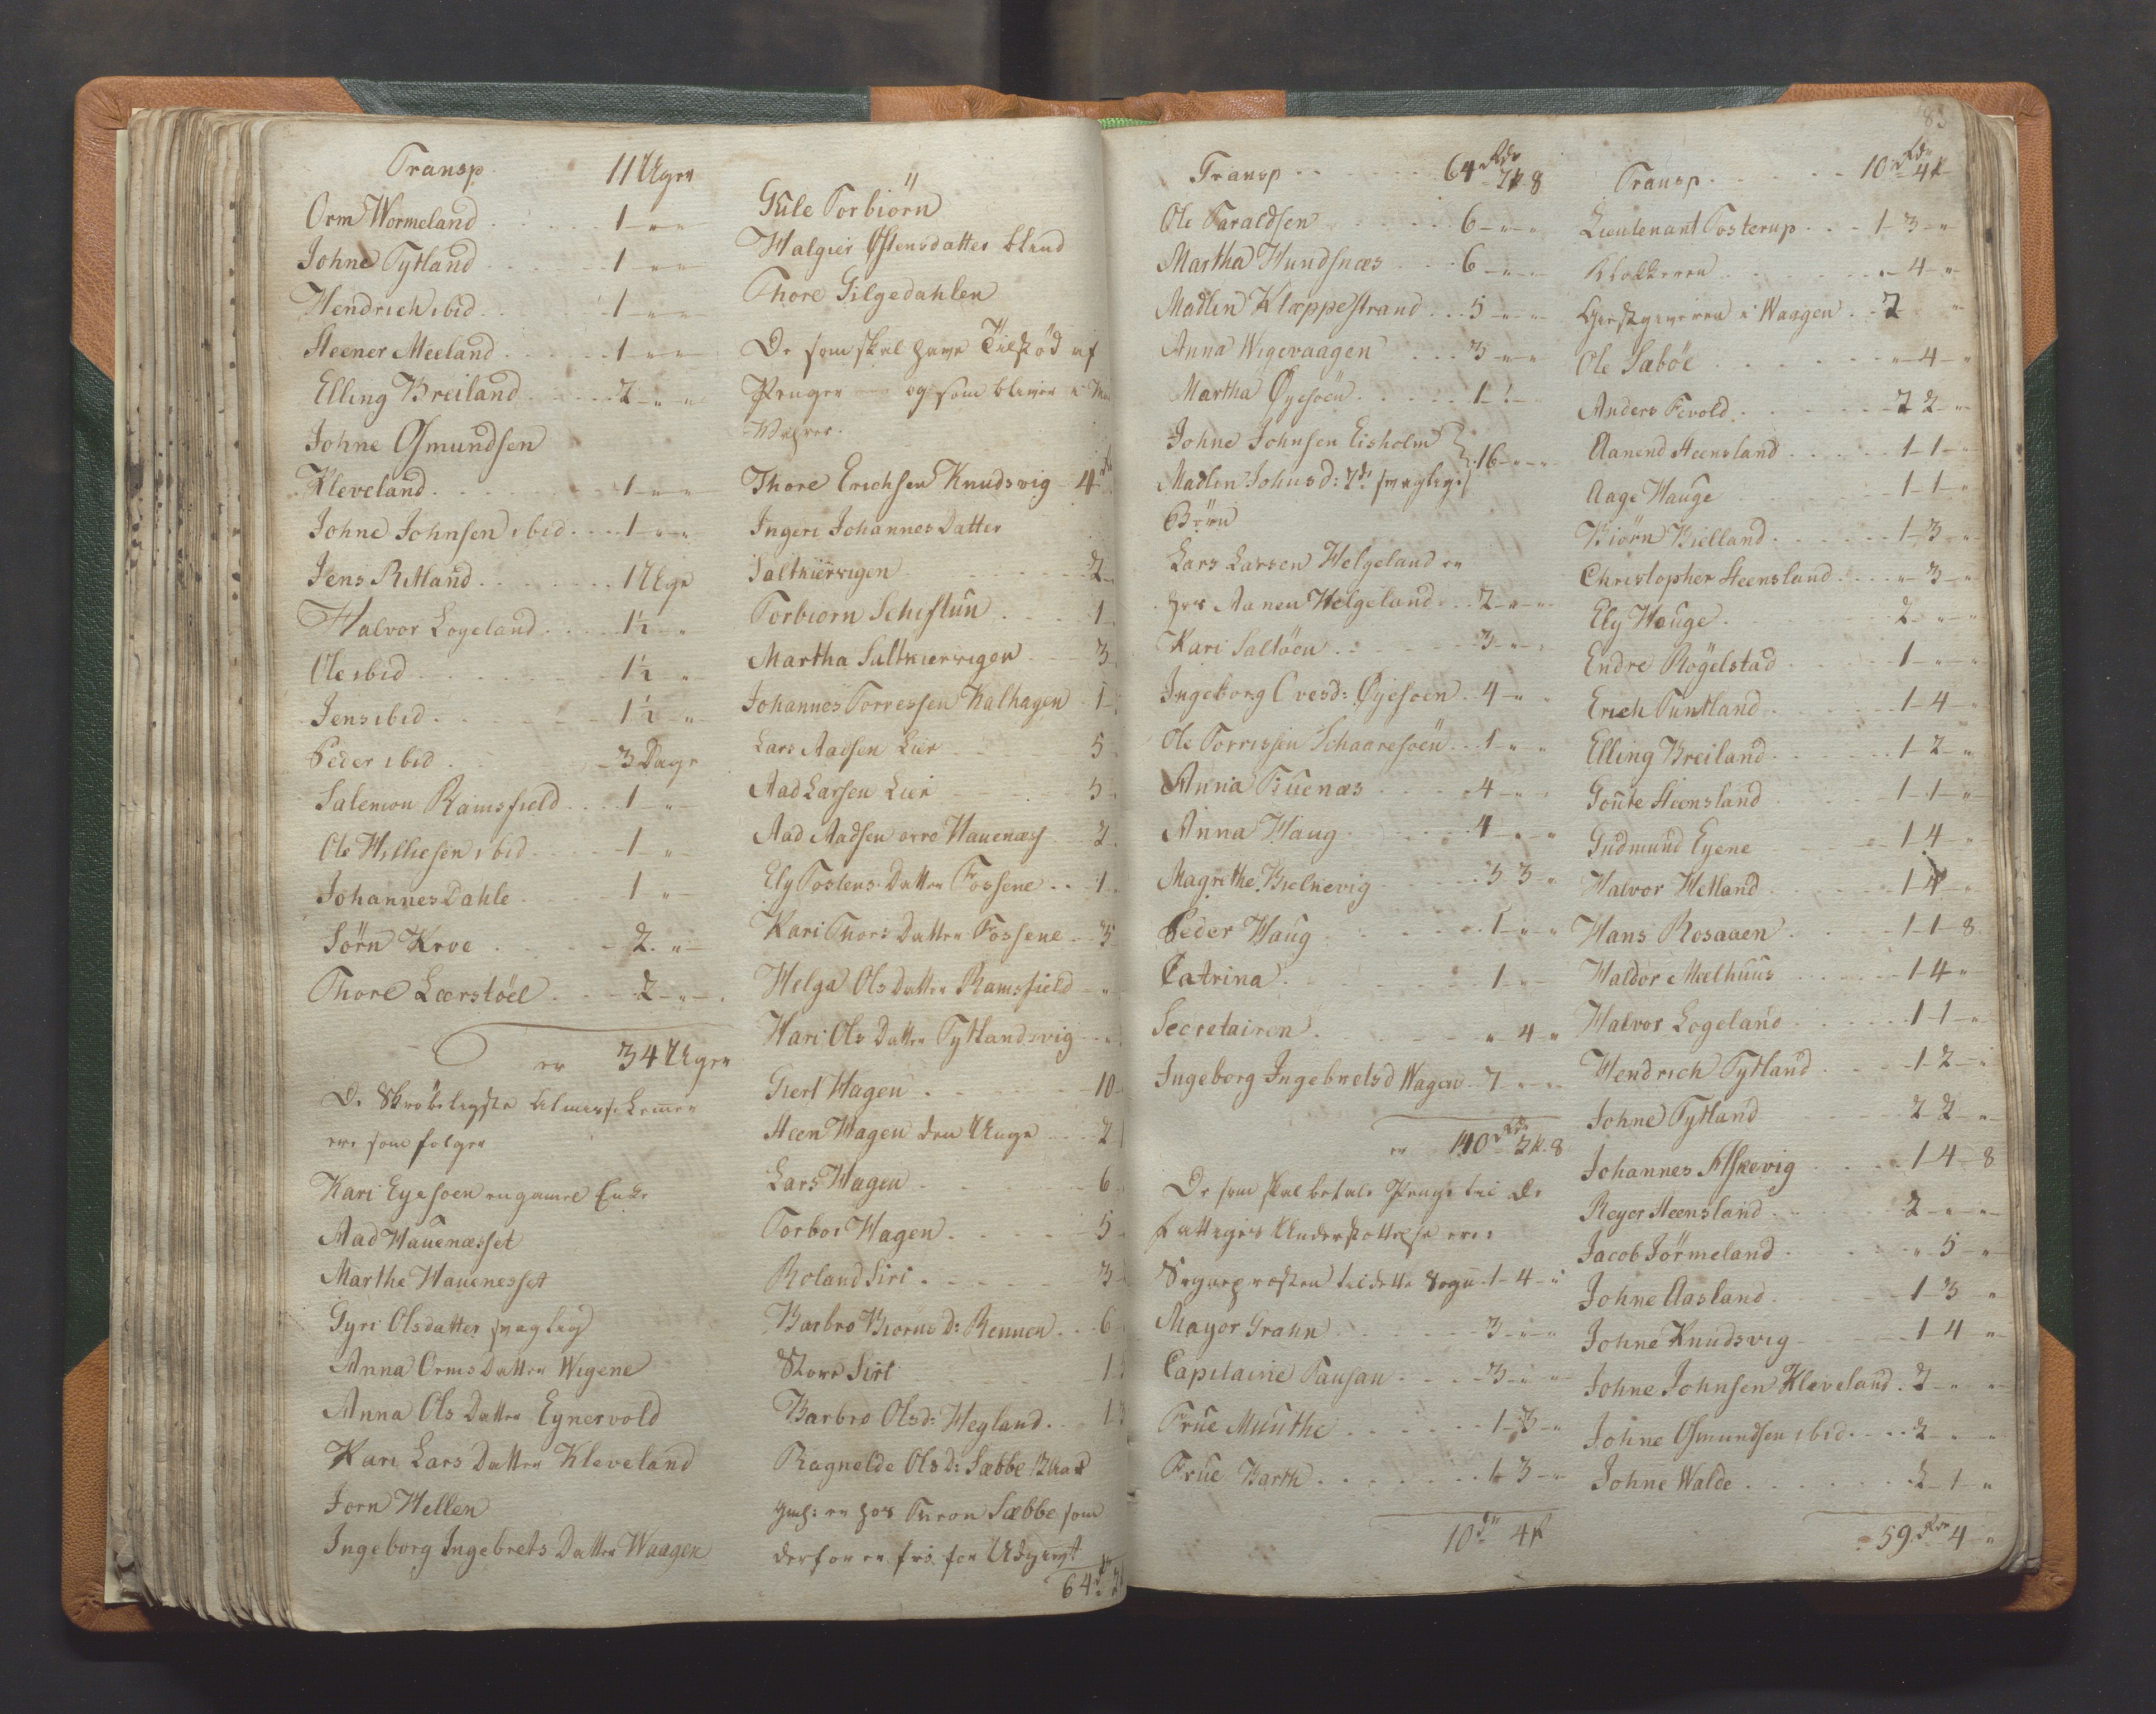 Transp. 11 Uger
Orm Wormeland 1 - " "
Johne Tytland 1 - " "
Hendrich ibid 1 - " "
Steener Meeland 1 - " "
Elling Breiland 2 - " "
Johne Osmundsen
Kleveland 1 - " "
Johne Johnsen ibid 1 - " "
Jens Ritland 1 Uge
Halvor Logeland 1½ "
Ole ibid 1½ "
Jens ibid 1½ "
Peder ibid 3 Dage
Salemon Ramsfield 1 - "
Ole Willicsen ibid 1 "
Johannes Dahle 1 "
Sörn Kroe 2 "
Thore Leerstöel 2 - "
er 34 Uger
De Skröbeligste Almisselemer
ere som følger
Kari Eyesoen en gamel Enke
Aad Hauenæsset
Marthe Hauenesset
Gyri Olsdatter svaglig
Anna Orms Datter Wigene
Anna Ols Datter Eynervold
Kari Lars Datter Kleveland
Jorn Hellen
Ingeborg Ingebrets Datter Waagen
Gule Torbiörn
Walgier Østensdatter blind
Thore Gilgedahlen
De som skal have Tilskød af
Penger og som bliver i
Thore Erichsen Knudsvig 4
Ingeri Johannes Datter
Saltkierrigen 2
Torbiorn Schistun 1
Martha Saltkierrigen 3
Johannes Torressen Kalhagen 1
Lars Aadsen Lier 5
Aad Larsen Lier 5
Aad Aadsen Hauenæss 2
Ely Tostens Datter Fossene 1
Kari Thors Datter Fossene 3
Helga Ols Datter Ramsfield "
Kari Ols Datter Tytlandsvig "
Giert Hagen 10
Steen Hagen den Unge 2
Lars Hagen 6
Torbor Hagen 5
Roland Siri 3
Barbro Biorns D: Rennen 6
Store Siri 1
Barbro Olsd: Hegland 1
Ragnelde Ols D: Sæbbe
er hos Tieron Sæbbe som
derfor er fri for Udgivt
64
Transp 64 Rdr 2 # 8
Ole Taraldsen 6 - " "
Martha Hundsnæs 6 - " "
Madlin Klæppestrand 5 - " "
Anna Wigevaagen 3 - " "
Martha Øyesoen 1 -
Johne Johnsen Eisholm } 16 - " "
Madlin Johnsd: svaglige
Børn
Lars Larsen Helgeland er
hos Aanen Helgeland 2 - " "
Kari Saltöen 3 - "
Ingeborg Ovesd: Øyesoen 4 - "
Ole Torrissen Schaaresoen 1 - " "
Anna Tuenæs 4 - "
Anna Haug 4 - "
Magrethe Bielkevig 3 3 "
Peder Haug 1 - " "
Catrina 1 - " -
Secretairen " 4 "
Ingeborg Ingebretsd Wagen 7 - "
er 140 Rdr 3 # 8
De som skal betale Penge til de
fattiges Understöttelse ere:
Sogneprosten til dette Sogn 1 - 4 - "
Mayor Grahn 3 - " "
Capitaine Fausan 3 - " "
Frue Munthe 1 - 3 - "
Frue Barth 1 3 - "
10 Rdr 4 #
83
Transp. 10 Rdr 4 #
Lieutenant Tosterup 1 - 3 - "
Klokkeren " - 4 "
Giestgiveren i Waagen 2 "
Ole Sæböe " - 4 - "
Anders Fevold 2 2 - "
Aanend Steensland 1 - 1 - "
Aage Hauge 1 - 1 - "
Biörn Bielland 1 - 3 - "
Christopher Steensland " - 3 - "
Ely Hauge 2 - " - "
Endre Rögelstad 1 - " - "
Erich Tuntland 1 - 4 - "
Elling Breiland 1 - 2 - "
Goute Steensland 1 - 1 - "
Gudmund Eyene 1 4 - "
Halvor Hetland 1 4 - "
Hans Rosaaen 1 - 1 - 8
Haldor Meelhuus 1 4 "
Halvor Logeland 1 1 - "
Hendrich Tytland 1 2 - "
Johne Tytland 2 2 - "
Johannes Askevig 1 - 4 - 8
Reyer Steensland 2 - " - "
Jacob Förmeland " 5 - "
Johne Aasland 1 3 "
Johne Knudsvig 1 4 "
Johne Johnsen Kleveland 2 - " "
Johne Osmundsen ibid 2 - " - "
Johne Walde 2 - 1 - "
59 Rdr 4 - "